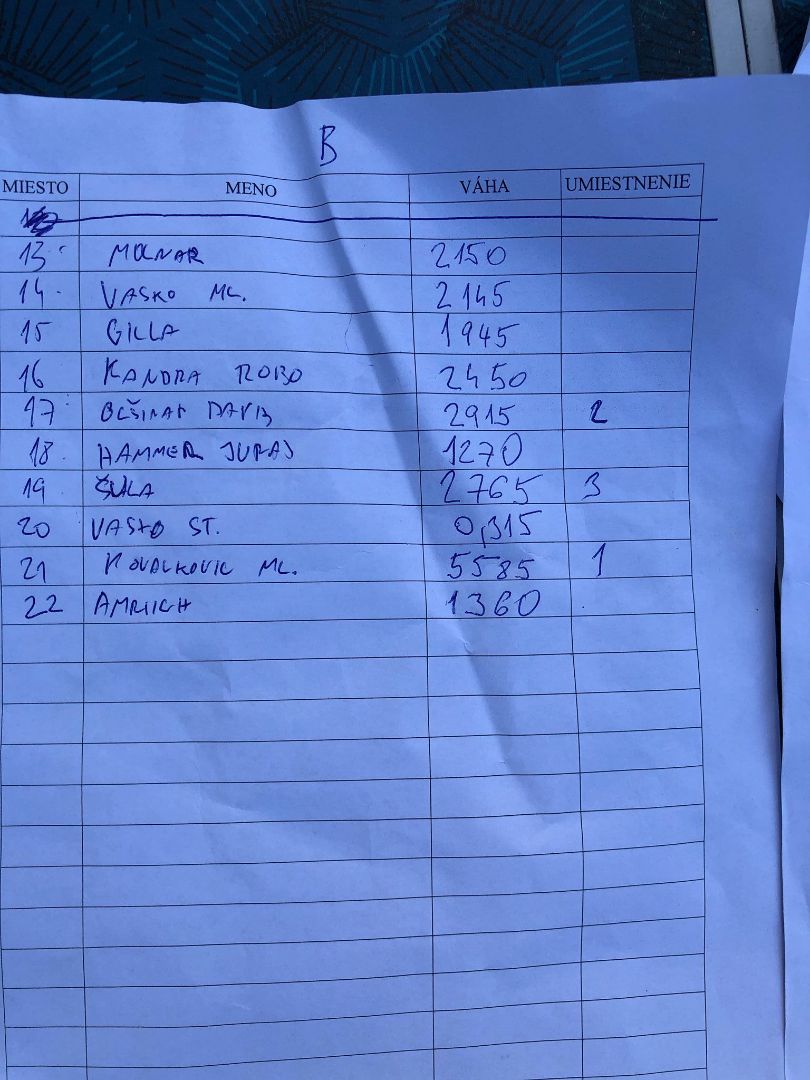 B
MIESTO MENO VÁHA UMIESTNENIE
13 MOLNAR 2150
14 VASKO ML. 2145
15 GILLA 1945
16 KANDRA ROBO 2450
17 OLŠINAR DAVID 2915 2
18 HAMMER JURAJ 1270
19 ŠULA 2765 3
20 VASKO ST. 0,315
21 KOVALKOVIC ML. 5585 1
22 1360